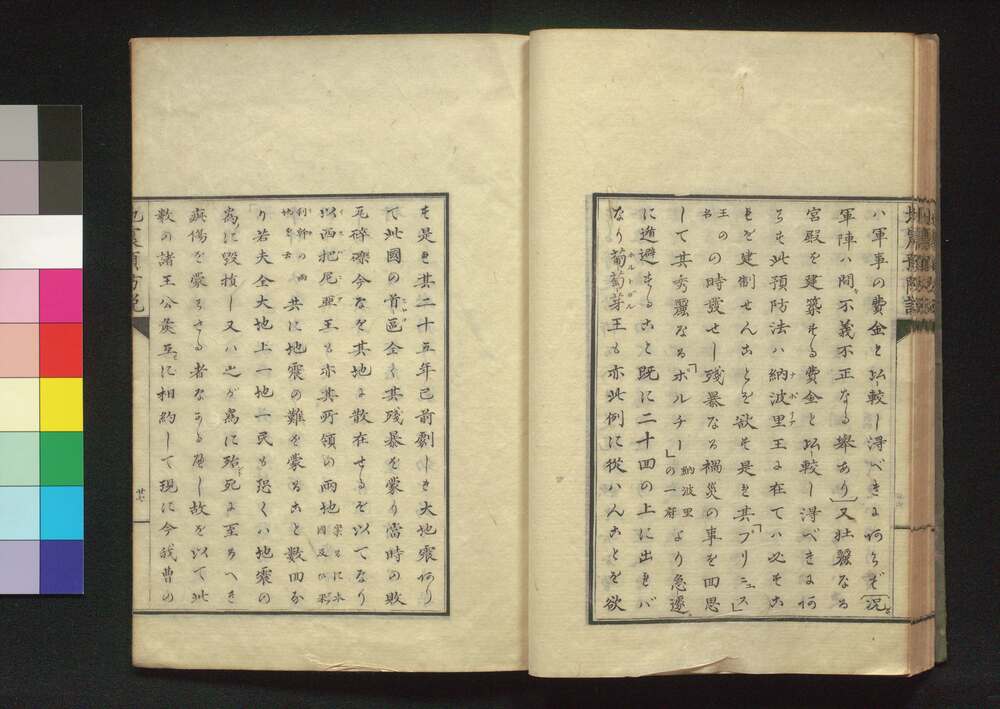 ハ軍事の費金と比較し得べきに何らず況
軍陣ハ間不義不正なる挙あり又壮麗なる
宮殿を建築する費金と比較し得べきに何
らす此預防法ハ納波里王に在てハ必すこ
れを建制せんことを欲す是れ其「プリニュス」
王の名の時発せし残暴なる禍災の事を回思
して其秀麗なる「ホルチー」納波里の一府より急遽
に遁避すること既に二十四の上に出れバ
なり葡萄芽王も亦此例に従ハんことを欲
す是れ其二十五年已前劇しき大地震何り
て此國の首邑全く其残暴を蒙り當時の敗
瓦碎礫今なを其地に散在せるを以てなり
以西把尼亜王も亦其所領の両地
共に地震の難を蒙ること数回な
り若夫全大地上一地一民も恐くハ地震の
為に毀損し又ハ之が為に殆死に至るへき
病傷を蒙らさる者なかるへし故を以て此
数の諸王公集互に相約して現に今我曹の
地震預防説
廿七